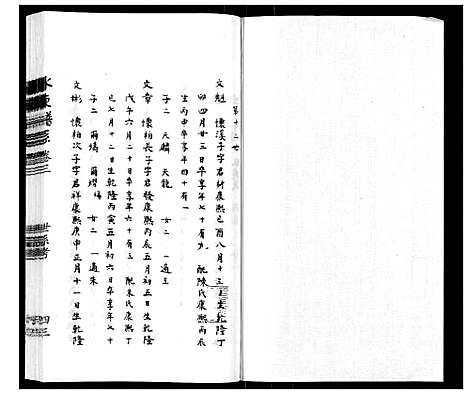 第十二世
文魁 懷溪子字君材康熙己酉八月十三日生乾隆丁
卯四月廿三日卒享年七十有九 配陳氏康熙丙辰
生丙申卒享年四十有一
子二 天麟 天龍 女二 一適王
文章 懷柏長子字君發康熙丙辰五月初五日生乾隆
戊午六月二十日卒享年六十有三 配朱氏康熙丁
巳七月十二日生乾隆丙寅五月初六日卒享年七十
子二 爾 爾 女二 一適朱
文彬 懷柏次子字君祥康熙庚申正月十一日生乾隆
世系考